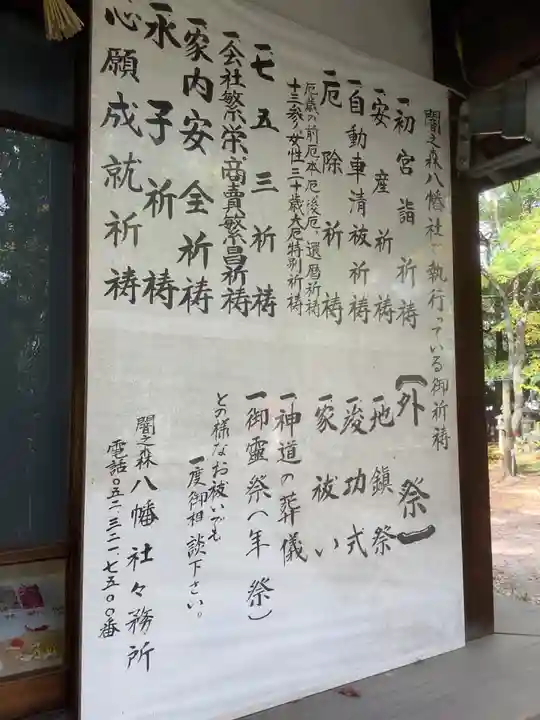 闇之森八幡社で執行っている御祈祷
一初宮詣祈祷
一安産祈祷
一自動車清祓祈祷
一厄除祈祷
厄歳の前厄本厄後厄、還暦祈祷
十三参り女性三十歳大厄特別祈祷
一七五三祈祷
一会社繁栄商賣繁昌祈祷
一家内安全祈祷
一求子祈祷
心願成就祈祷
(外祭)
一地鎮祭
一竣功式
一家祓い
一神道の葬儀
一御霊祭(年祭)
との様なお祓いでも
一度御相談下さい。
闇之森八幡社々務所
電話〇五二、三二一、七五〇〇番